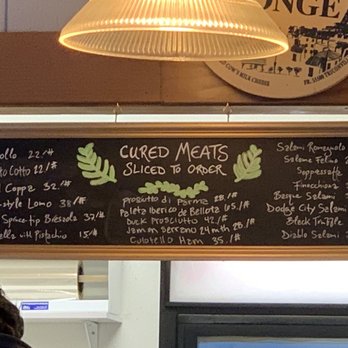 ONGE
COW'S MILK CHEESE
CURED MEATS
SLICED TO ORDER
ollo 22./#
to Cotto 22/#
l Coppa 32./#
-style Lomo 38/#
Spacetip Bresaola 37/#
ella with Pistachio 15/#
prosciutto di Parma 28./#
Paleta Iberico de Bellota 65./#
Duck Prosciutto 42./#
Jamon Serrano 24 mth 28./#
Culotello Ham 35./#
Salami Romagnolo
Salame Felino
Soppressata
Finocchiona
Basque Salami
Dodge City Salami
Black Truffle
Diablo Salami